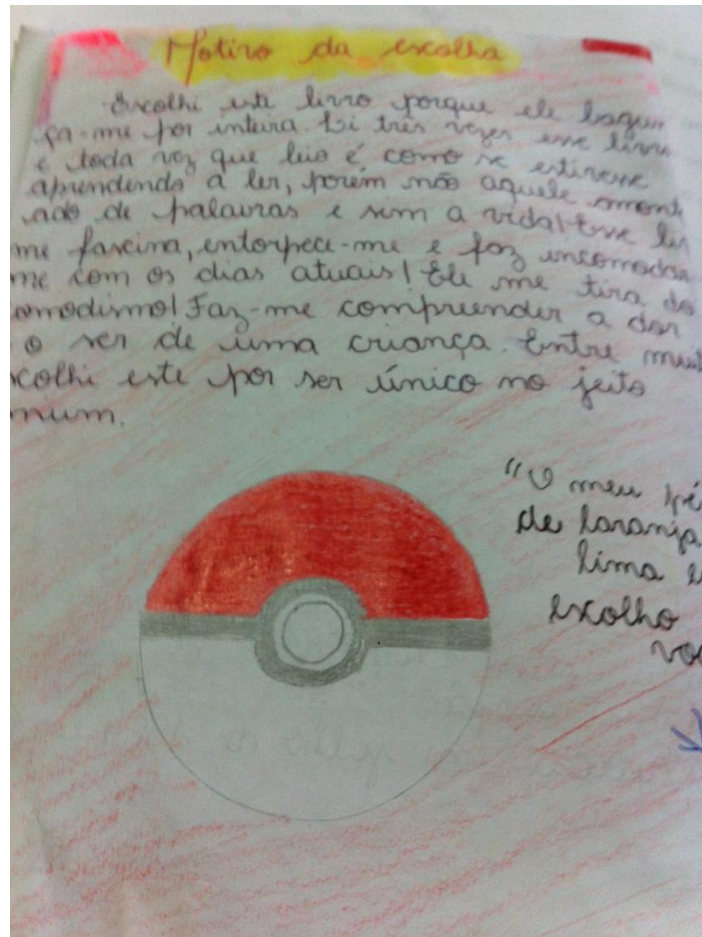 Motivo da escolha
Escolhi este livro porque ele bagun
ça-me por inteira. Li três vezes esse livro
e toda vez que leio é como se estivesse
aprendendo a ler, porém não aquele mont
ado de palavras e sim a vida! Esse li
me fascina, entorpece-me e faz incomodar
me com os dias atuais! Ele me tira do
omodismo! Faz-me compreender a dor
o ser de uma criança. Entre muit
colhi este por ser único no jeito
mum.
"O meu pé
de laranja
lima e
escolho
voc